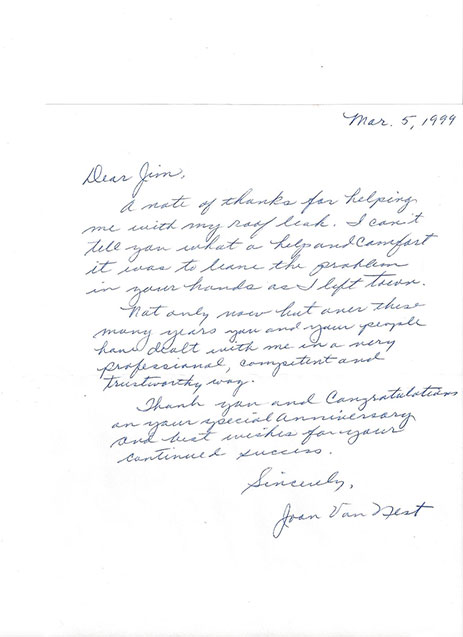 Mar. 5, 1999
Dear Jim,
A note of thanks for helping
me with my roof leak. I can't
tell you what a help and comfort
it was to leave the problem
in your hands as I left town.
Not only now but over these
many years you and your people
have dealt with me in a very
professional, competent and
trustworthy way.
Thank you and Congratulations
on your special Anniversary
and best wishes for your
continued success.
Sincerely,
Joan Van Nest